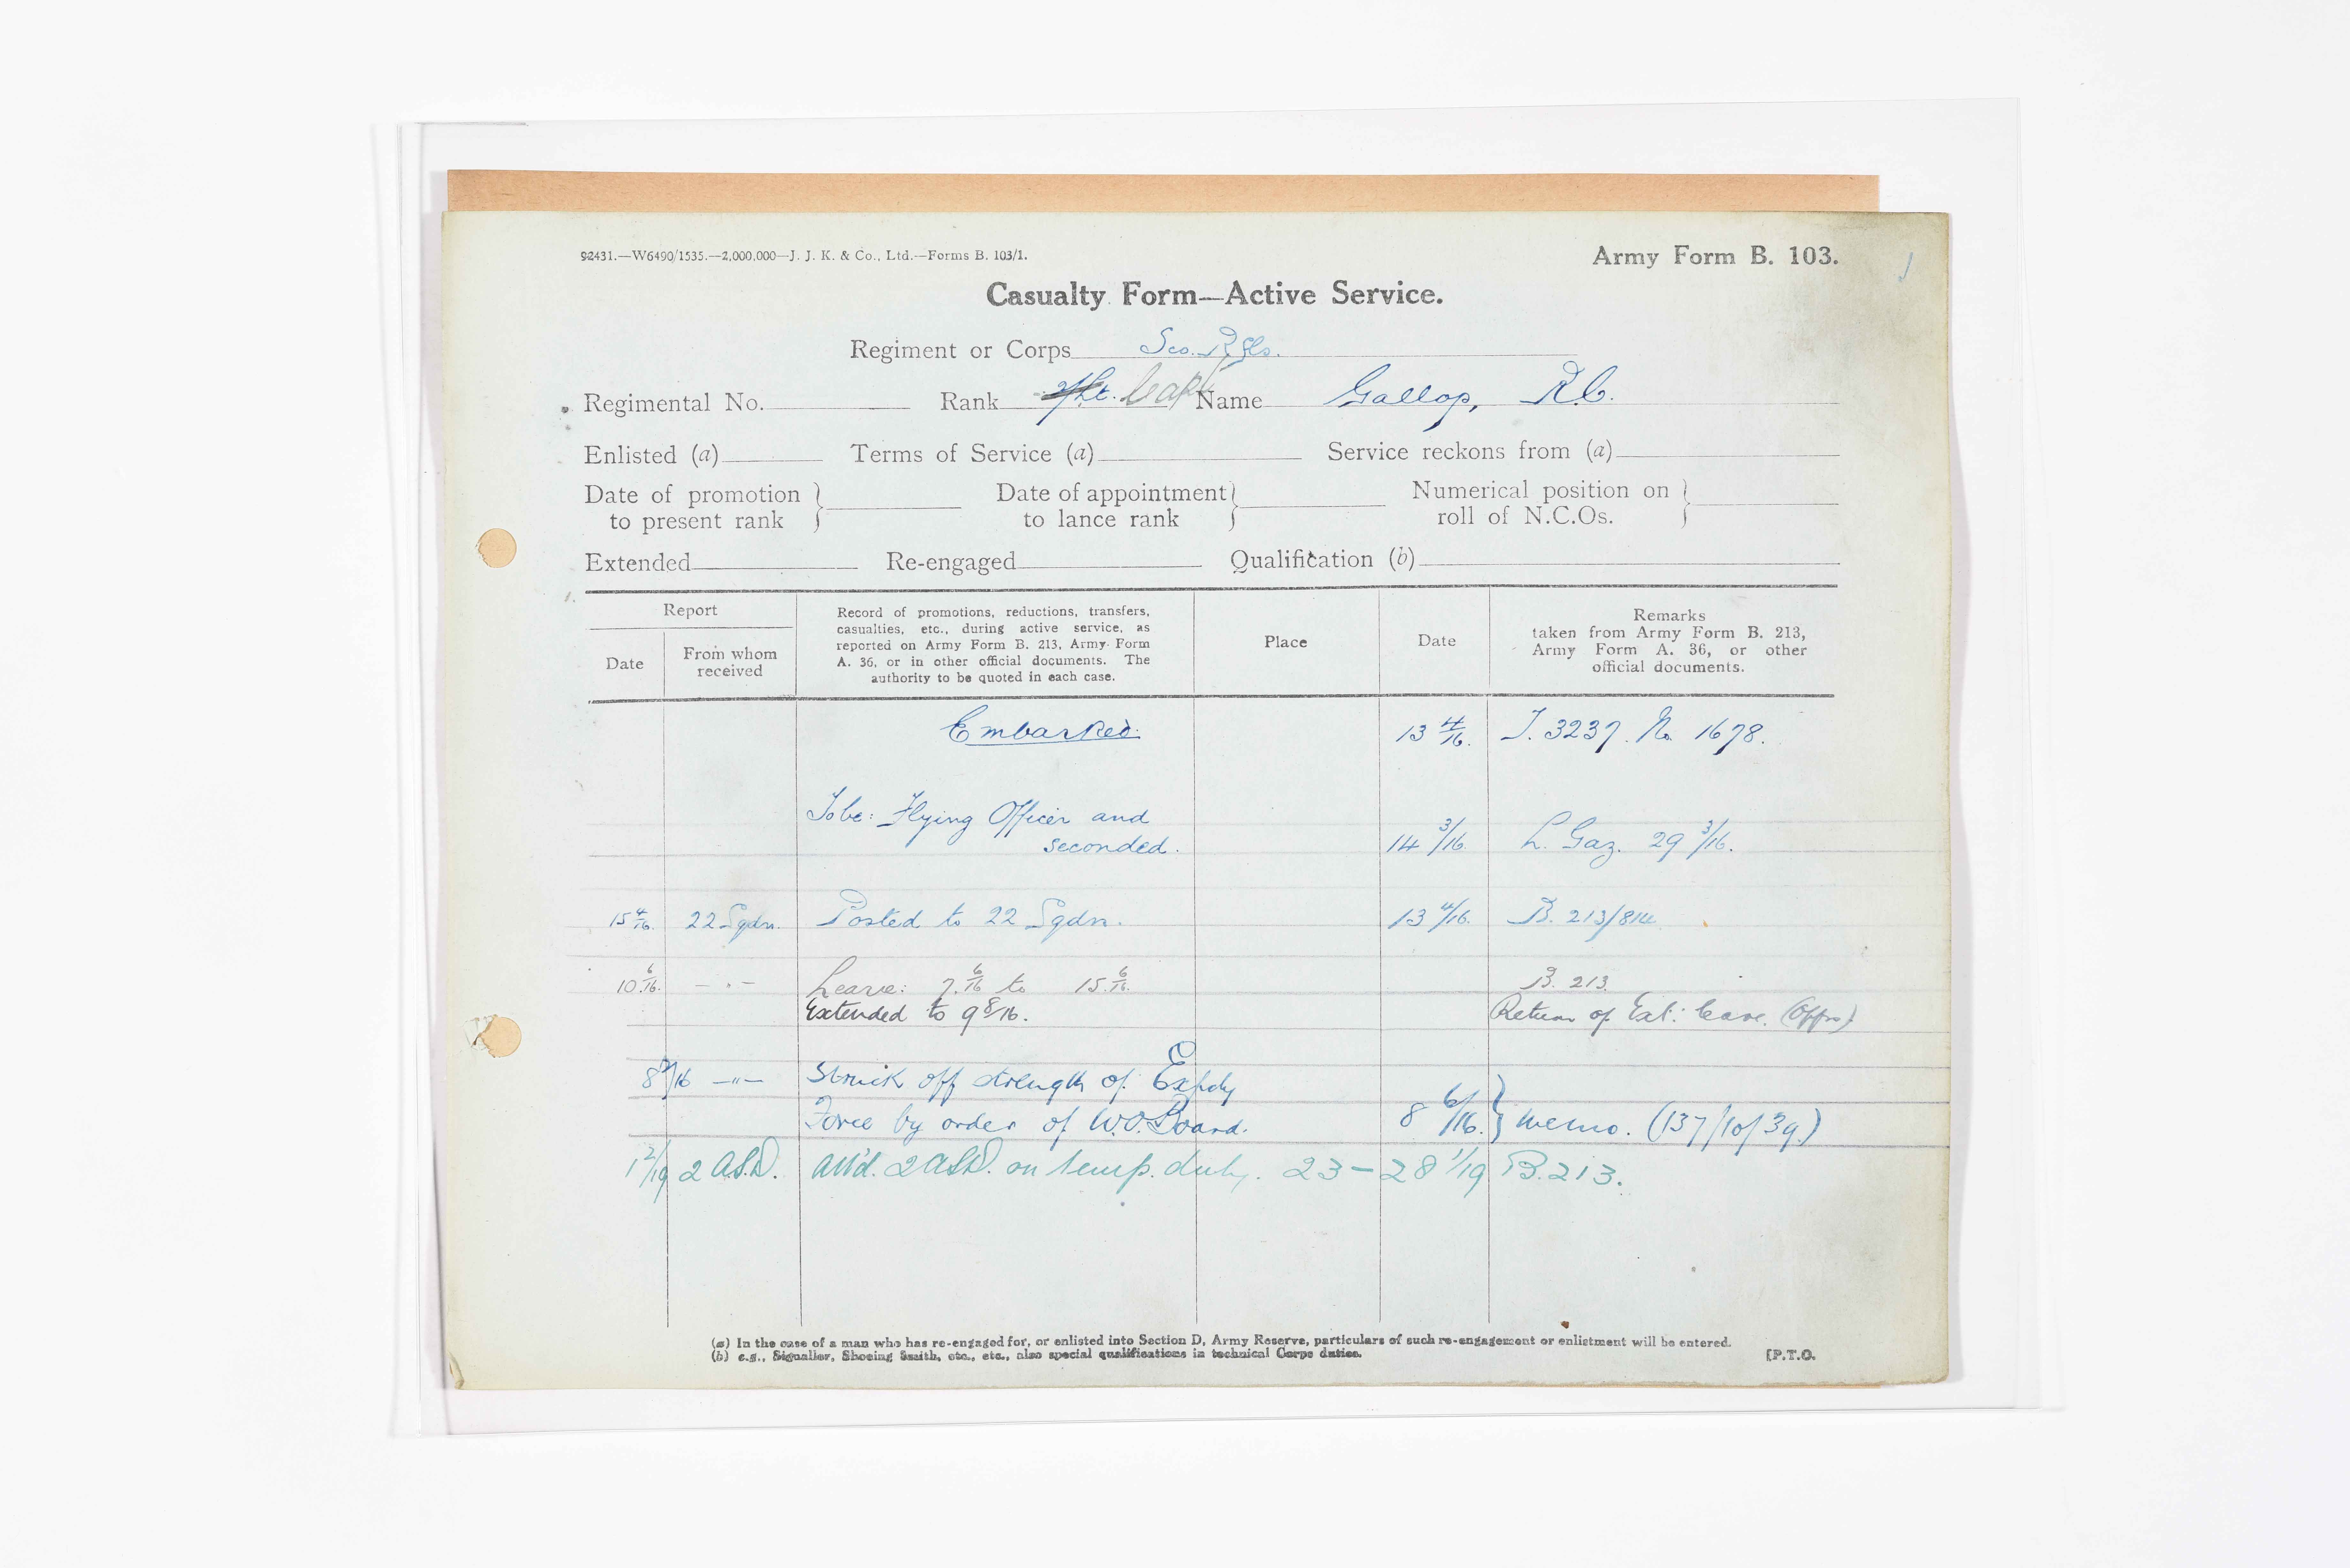 92431.—W6490/1535.—2,000,000—J. J. K. & Co., Ltd.—Forms B. 103/1.
Army Form B. 103.
Casualty Form—Active Service.
Regiment or Corps Sco. Rfls.
Regimental No. Rank 2/Lt. Capt Name Gallop, R.C.
Enlisted (a) Terms of Service (a) Service reckons from (a)
Date of promotion to present rank } Date of appointment to lance rank } Numerical position on roll of N.C.Os. }
Extended Re-engaged Qualification (b)
Report
Date
From whom received
Record of promotions, reductions, transfers,
casualties, etc., during active service, as
reported on Army Form B. 213, Army Form
A. 36, or in other official documents. The
authority to be quoted in each case.
Place
Date
Remarks
taken from Army Form B. 213,
Army Form A. 36, or other
official documents.
Embarked. 13 4/16. J. 3237. No. 1678.
To be: Flying Officer and
seconded. 14 3/16. L. Gaz. 29 3/16.
15 4/16. 22 Sqdn. Posted to 22 Sqdn. 13 4/16. B. 213/814
10 6/16. — " — Leave: 7. 6/16 to 15. 6/16. B. 213.
Extended to 9 8/16. Return of Ext: leave. (Offrs)
8 /16 — " — Struck off strength of Expdy
Force by order of W.O. Board. 8 6/16. } memo. (137/10/39.)
1 2/19 2 A.S.D. Att'd. 2 ASD. on temp. duty. 23 — 28 1/19 B. 213.
(a) In the case of a man who has re-engaged for, or enlisted into Section D, Army Reserve, particulars of such re-engagement or enlistment will be entered.
(b) e.g., Signaller, Shoeing Smith, etc., etc., also special qualifications in technical Corps duties.
[P.T.O.